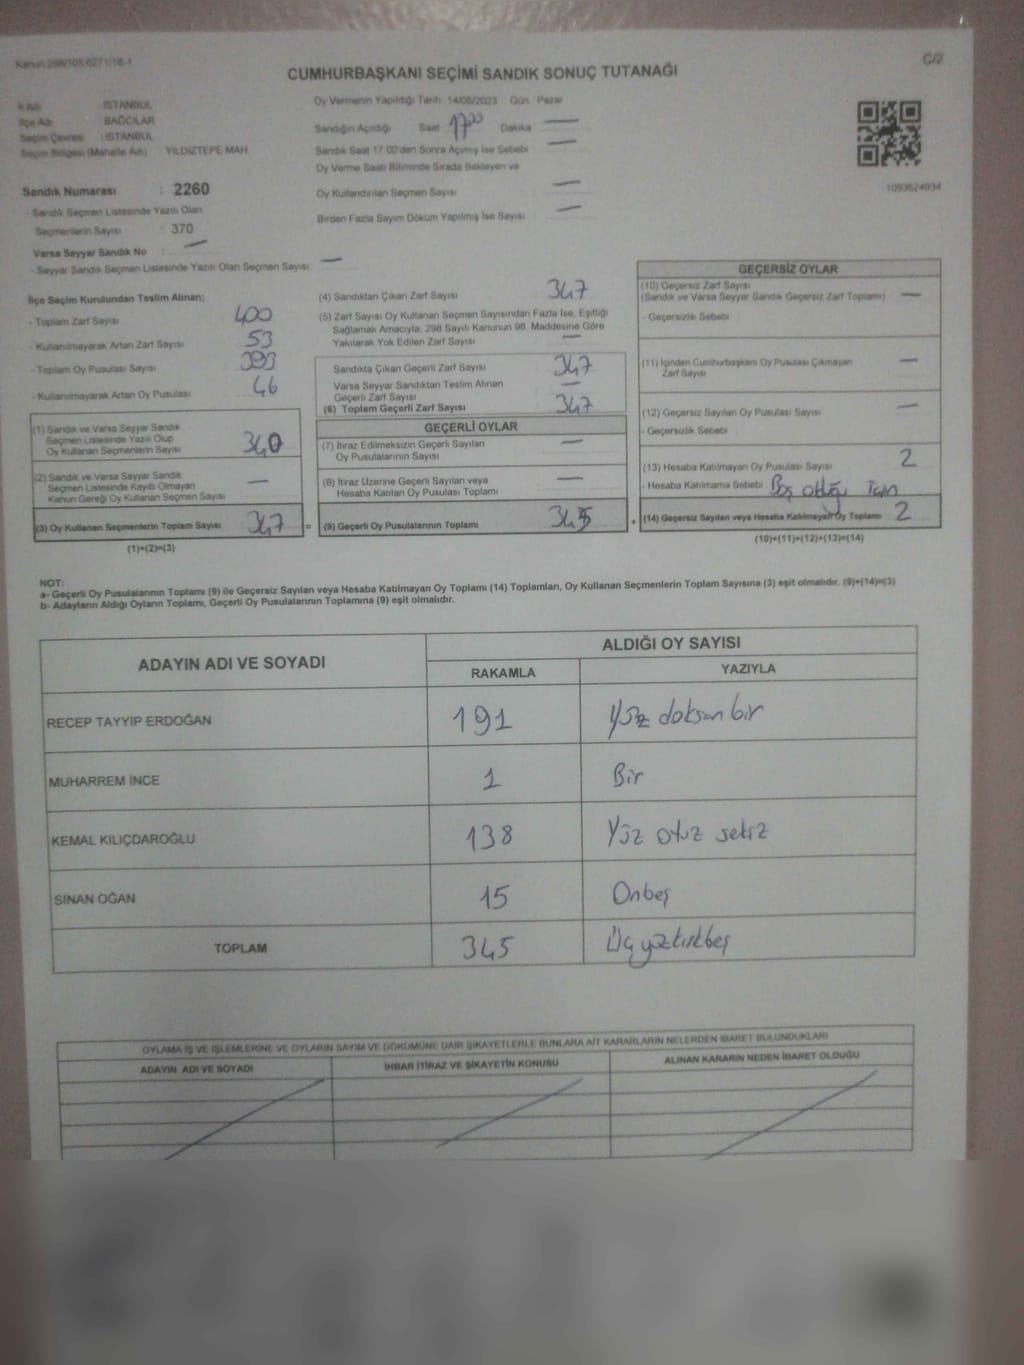 Kanun:298/105 6271/18-1
C/2
CUMHURBAŞKANI SEÇİMİ SANDIK SONUÇ TUTANAĞI
İl Adı : İSTANBUL
İlçe Adı : BAĞCILAR
Seçim Çevresi : İSTANBUL
Seçim Bölgesi (Mahalle Adı) YILDIZTEPE MAH
Sandık Numarası : 2260
- Sandık Seçmen Listesinde Yazılı Olan
Seçmenlerin Sayısı : 370
Varsa Seyyar Sandık No : —
- Seyyar Sandık Seçmen Listesinde Yazılı Olan Seçmen Sayısı: —
Oy Vermenin Yapıldığı Tarih : 14/05/2023 Gün : Pazar
Sandığın Açıldığı Saat : 17:00 Dakika : —
Sandık Saat 17:00'den Sonra Açımış İse Sebebi —
Oy Verme Saati Bitiminde Sırada Bekleyen ve
Oy Kullandırılan Seçmen Sayısı —
Birden Fazla Sayım Döküm Yapılmış İse Sayısı —
1093624934
İlçe Seçim Kurulundan Teslim Alınan;
- Toplam Zarf Sayısı 400
- Kullanılmayarak Artan Zarf Sayısı 53
- Toplam Oy Pusulası Sayısı 393
- Kullanılmayarak Artan Oy Pusulası 46
(1) Sandık ve Varsa Seyyar Sandık
Seçmen Listesinde Yazılı Olup
Oy Kullanan Seçmenlerin Sayısı 340
(2) Sandık ve Varsa Seyyar Sandık
Seçmen Listesinde Kayıtlı Olmayan
Kanun Gereği Oy Kullanan Seçmen Sayısı —
(3) Oy Kullanan Seçmenlerin Toplam Sayısı 347 =
(1)+(2)=(3)
(4) Sandıktan Çıkan Zarf Sayısı 347
(5) Zarf Sayısı Oy Kullanan Seçmen Sayısından Fazla İse, Eşitliği
Sağlamak Amacıyla, 298 Sayılı Kanunun 98. Maddesine Göre
Yakılarak Yok Edilen Zarf Sayısı —
Sandıkta Çıkan Geçerli Zarf Sayısı 347
Varsa Seyyar Sandıktan Teslim Alınan
Geçerli Zarf Sayısı —
(6) Toplam Geçerli Zarf Sayısı 347
GEÇERLİ OYLAR
(7) İtiraz Edilmeksizin Geçerli Sayılan
Oy Pusulalarının Sayısı —
(8) İtiraz Üzerine Geçerli Sayılan veya
Hesaba Katılan Oy Pusulası Toplamı —
(9) Geçerli Oy Pusulalarının Toplamı 345 +
GEÇERSİZ OYLAR
(10) Geçersiz Zarf Sayısı
(Sandık ve Varsa Seyyar Sandık Geçersiz Zarf Toplamı) —
- Geçersizlik Sebebi
(11) İçinden Cumhurbaşkanı Oy Pusulası Çıkmayan
Zarf Sayısı —
(12) Geçersiz Sayılan Oy Pusulası Sayısı —
- Geçersizlik Sebebi
(13) Hesaba Katılmayan Oy Pusulası Sayısı 2
- Hesaba Katılmama Sebebi Boş olduğu için
(14) Geçersiz Sayılan veya Hesaba Katılmayan Oy Toplamı 2
(10)+(11)+(12)+(13)=(14)
NOT:
a- Geçerli Oy Pusulalarının Toplamı (9) ile Geçersiz Sayılan veya Hesaba Katılmayan Oy Toplamı (14) Toplamları, Oy Kullanan Seçmenlerin Toplam Sayısına (3) eşit olmalıdır. (9)+(14)=(3)
b- Adayların Aldığı Oyların Toplamı, Geçerli Oy Pusulalarının Toplamına (9) eşit olmalıdır.
ADAYIN ADI VE SOYADI
ALDIĞI OY SAYISI
RAKAMLA YAZIYLA
RECEP TAYYİP ERDOĞAN 191 Yüz doksan bir
MUHARREM İNCE 1 Bir
KEMAL KILIÇDAROĞLU 138 Yüz otuz sekiz
SİNAN OĞAN 15 Onbeş
TOPLAM 345 Üçyüzkırkbeş
OYLAMA İŞ VE İŞLEMLERİNE VE OYLARIN SAYIM VE DÖKÜMÜNE DAİR ŞİKAYETLERLE BUNLARA AİT KARARLARIN NELERDEN İBARET BULUNDUKLARI
ADAYIN ADI VE SOYADI İHBAR İTİRAZ VE ŞİKAYETİN KONUSU ALINAN KARARIN NEDEN İBARET OLDUĞU